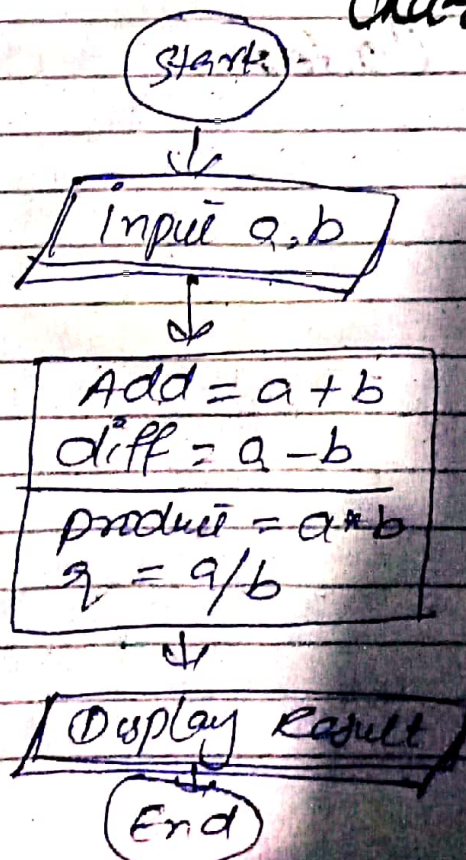 Start
Input a, b
Add = a + b
diff = a - b
product = a * b
q = a/b
Display Result
End